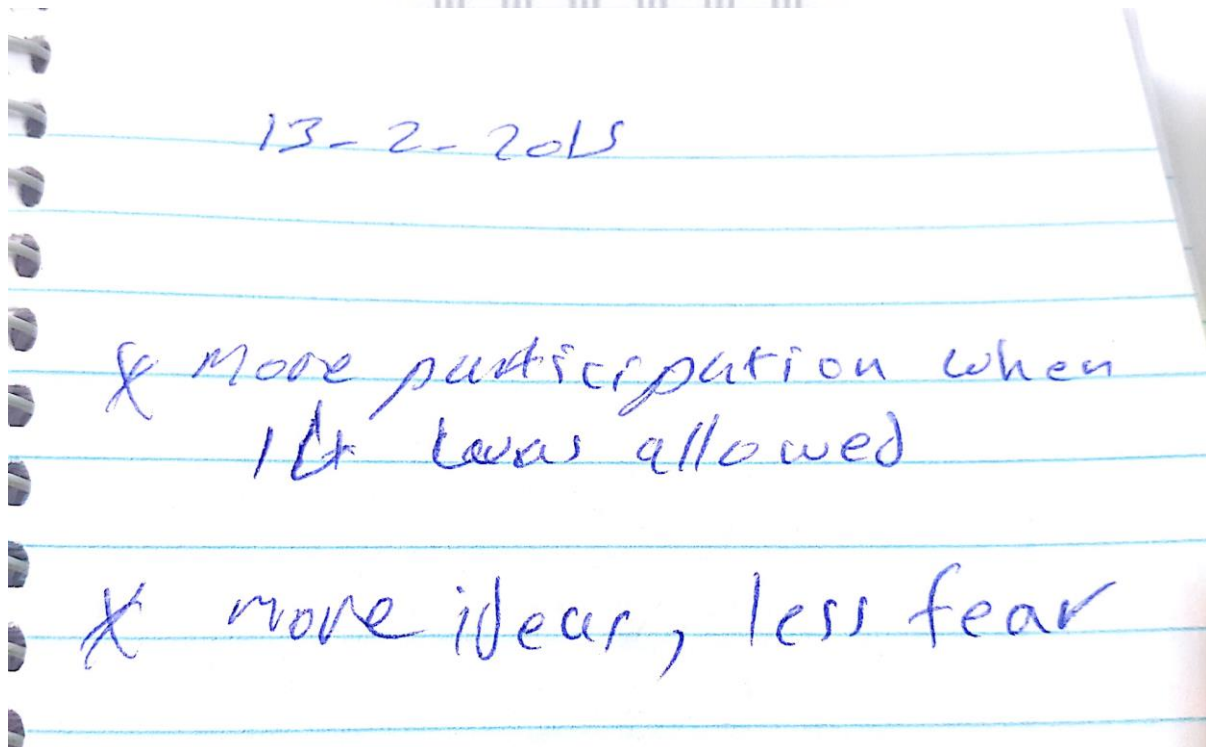 13-2-2015
x More participation when
it was allowed
x more ideas, less fear